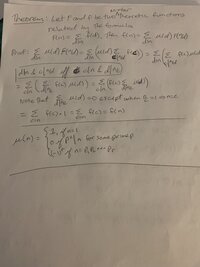 Theorem: Let F and f be two number theoretic functions
related by the formula
F(n) = Σ_{d|n} f(d). Then f(n) = Σ_{d|n} μ(d) F(n/d)
Proof: Σ_{d|n} μ(d) F(n/d) = Σ_{d|n} (μ(d) Σ_{c|n/d} f(c)) = Σ_{d|n} (Σ_{c|n/d} f(c) μ(d))
d|n & c|n/d iff c|n & d|n/c
= Σ_{c|n} (Σ_{d|n/c} f(c) μ(d)) = Σ_{c|n} (f(c) Σ_{d|n/c} μ(d))
Note that Σ_{d|n/c} μ(d) = 0 except when n/c = 1 once
= Σ_{c=n} f(c) × 1 = Σ_{c=n} f(c) = f(n)
μ(n) = { 1, if n=1
0 if p²|n for some prime p
(-1)^r if n = p₁p₂... pᵣ